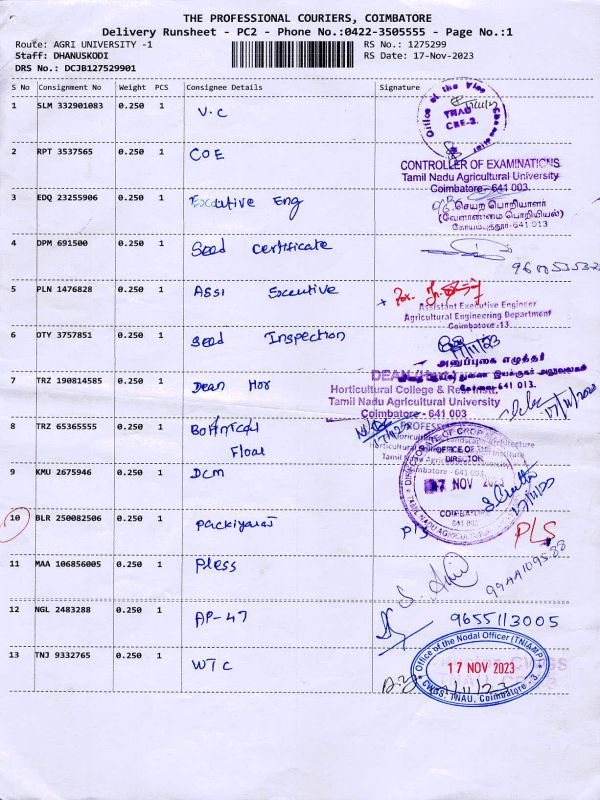 THE PROFESSIONAL COURIERS, COIMBATORE
Delivery Runsheet - PC2 - Phone No.:0422-3505555 - Page No.:1
Route: AGRI UNIVERSITY -1
RS No.: 1275299
Staff: DHANUSKODI
RS Date: 17-Nov-2023
DRS No.: DCJB127529901
S No Consignment No Weight PCS Consignee Details Signature
1 SLM 332901083 0.250 1 V.C
Office of the Vice Chancellor
TNAU
CBE-3.
2 RPT 3537565 0.250 1 COE
CONTROLLER OF EXAMINATIONS
Tamil Nadu Agricultural University
Coimbatore - 641 003.
3 EDQ 23255906 0.250 1 Executive Eng
செயற பொறியாளர்
(வேளாண்மை பொறியியல்)
கோயம்புத்தூர்-641 013
4 DPM 691500 0.250 1 Seed certificate
5 PLN 1476828 0.250 1 Assi Executive
Assistant Executive Engineer
Agricultural Engineering Department
Coimbatore -13
6 OTY 3757851 0.250 1 Seed Inspection
17/11/23
அனுப்புகை எழுத்தர்
கோவை-641 013.
7 TRZ 190814585 0.250 1 Dean Hor
DEAN (Horti)
Horticultural College &
Tamil Nadu Agricultural University
Coimbatore - 641 003
17/11/2023
8 TRZ 65365555 0.250 1 Botnical
Floal
PROFESSOR
Landscape Architecture
DIRECTORATE OF CROP
OFFICE OF THE
DIRECTOR
9 KMU 2675946 0.250 1 DCM
17 NOV 2023
17/11/23
10 BLR 250082506 0.250 1 packiyaraj
COIMBATORE
641 003
TAMIL NADU AGRICULTURAL
PLS
PLS
11 MAA 106856005 0.250 1 Pless
12 NGL 2483288 0.250 1 AP-47
9655113005
13 TNJ 9332765 0.250 1 WTC
Office of the Nodal Officer (TNIAMP)
17 NOV 2023
CWGS, TNAU, Coimbatore -3.